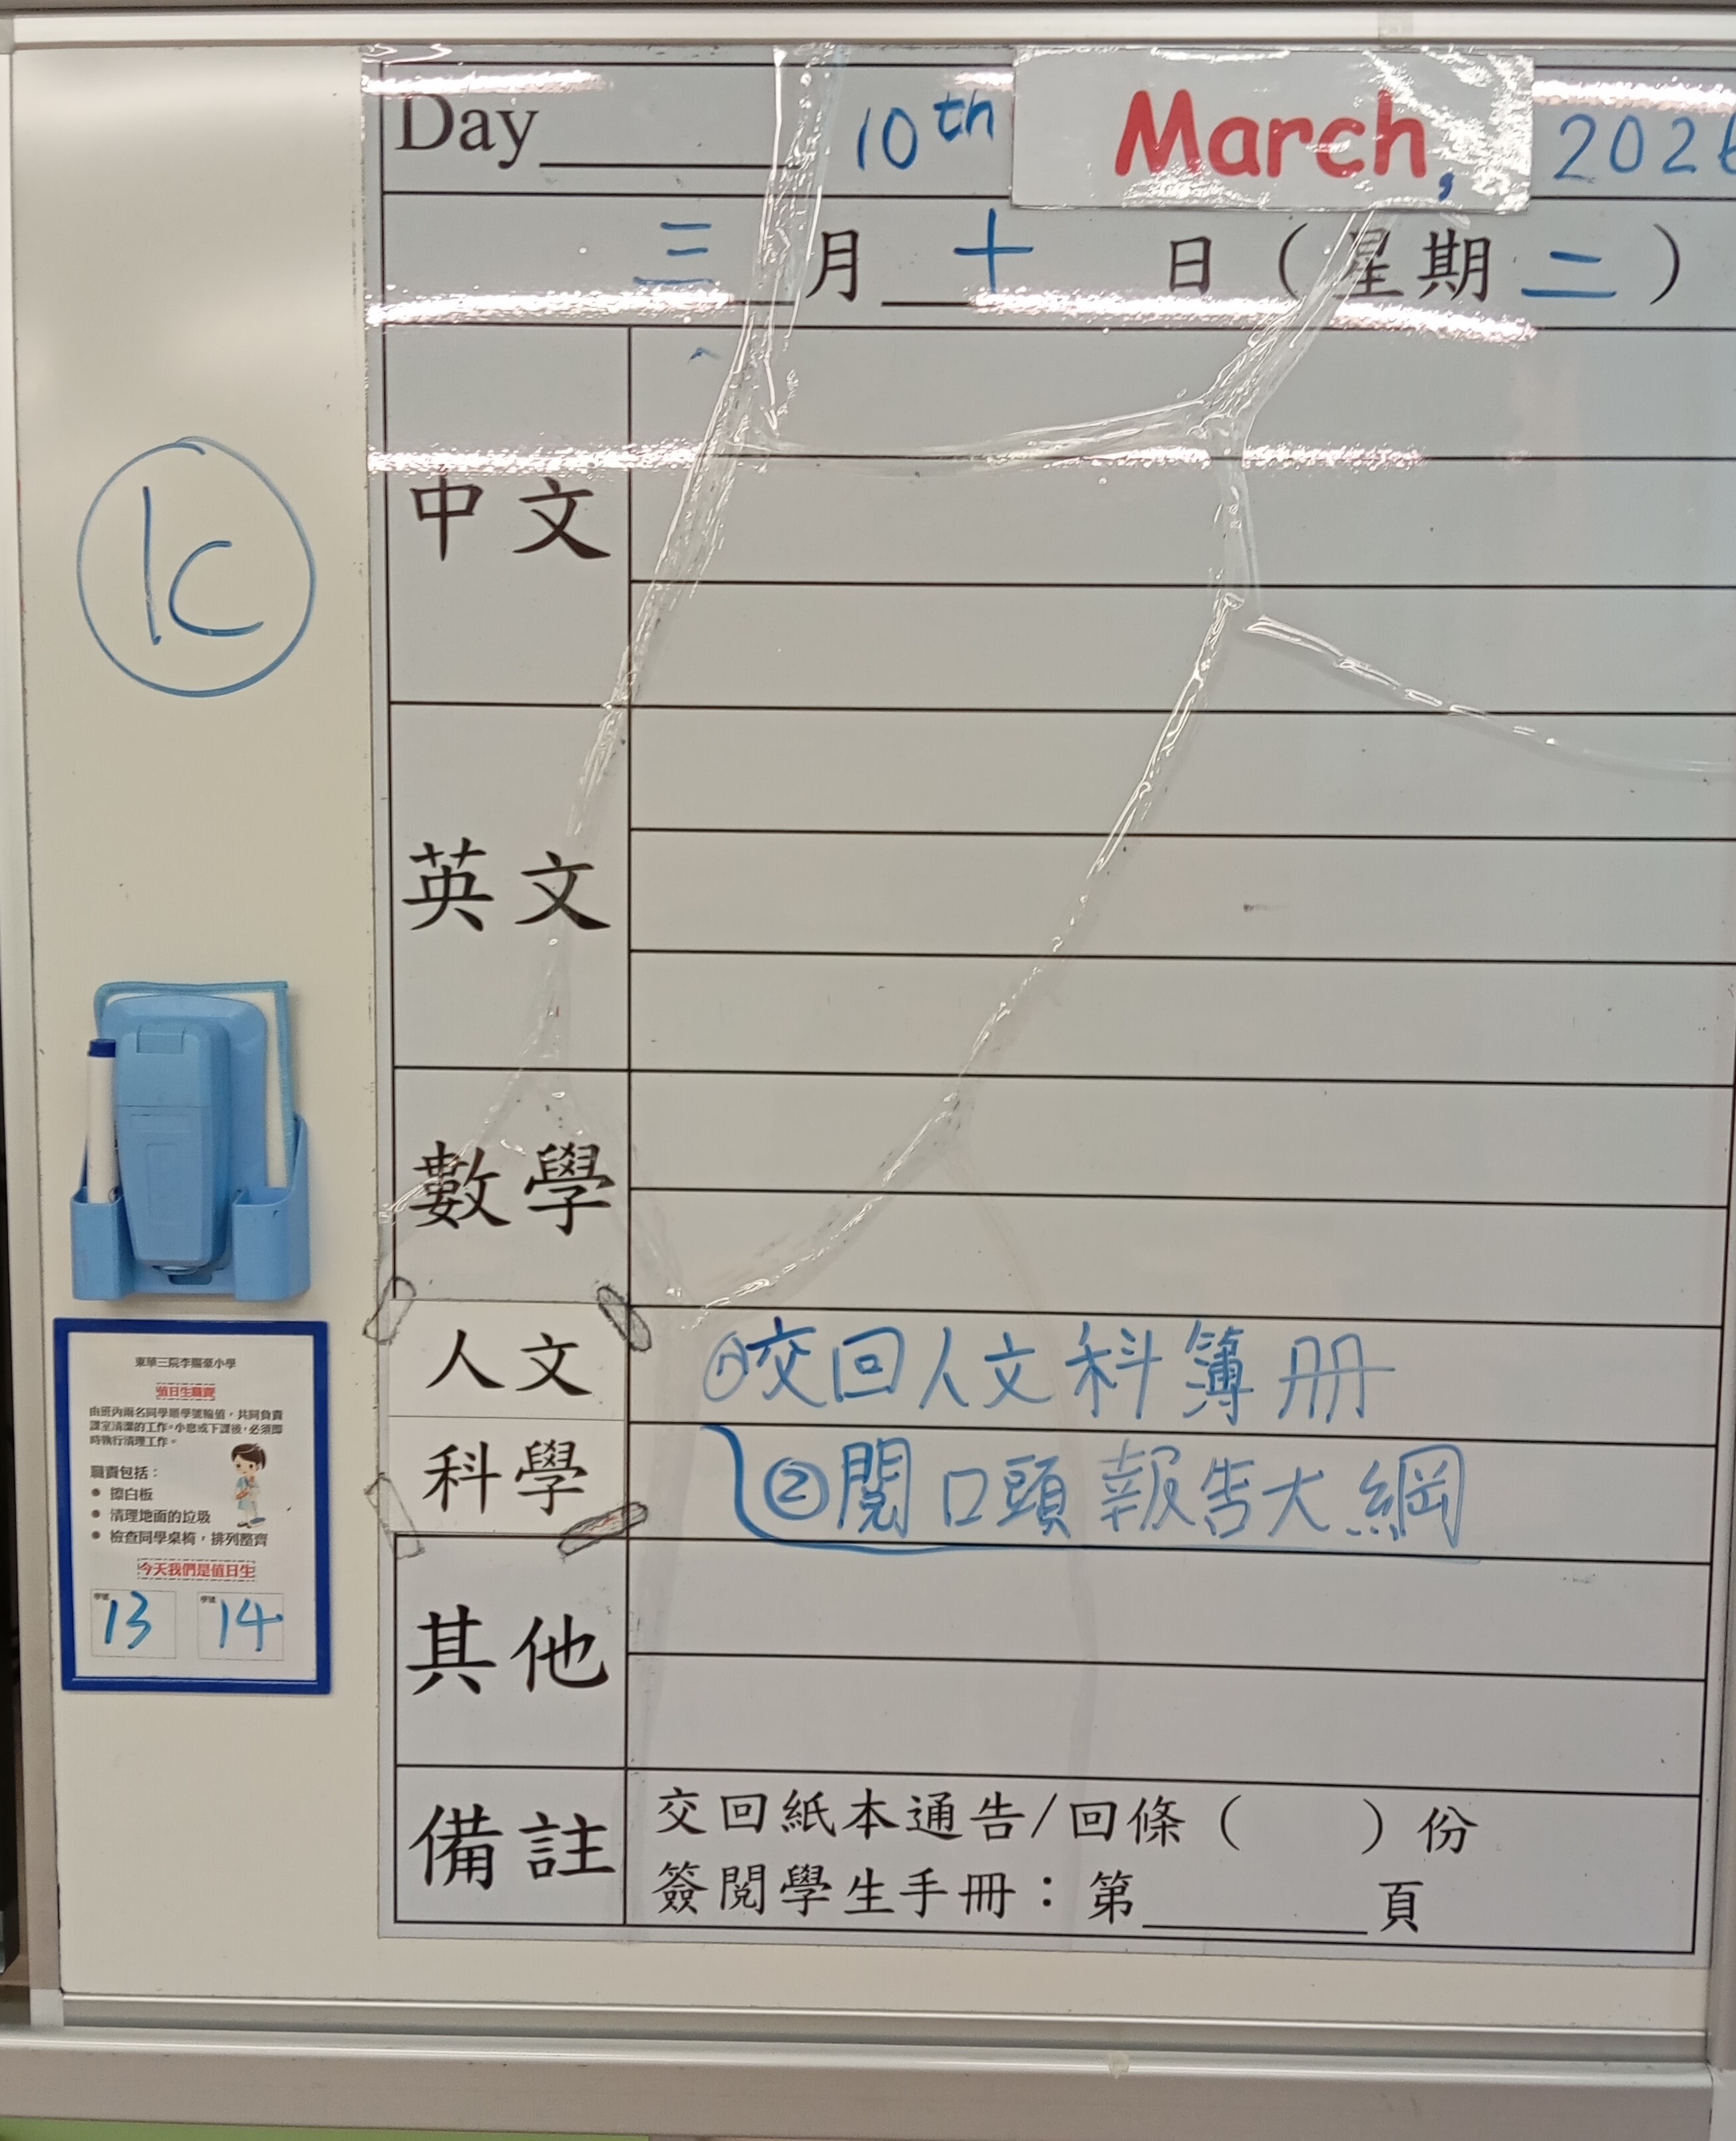 Day
10th March, 2026
三月十日（星期二）
1C
中文
英文
數學
人文
①交回人文科簿冊
科學
②閱口頭報告大綱
其他
備註
交回紙本通告/回條（ ）份
簽閱學生手冊：第 頁
東華三院李賜豪小學
值日生職責
由班內兩名同學順學號輪值，共同負責
課室清潔的工作。小息或下課後，必須即
時執行清理工作。
職責包括：
● 擦白板
● 清理地面的垃圾
● 檢查同學桌椅，排列整齊
今天我們是值日生
學號 13 學號 14